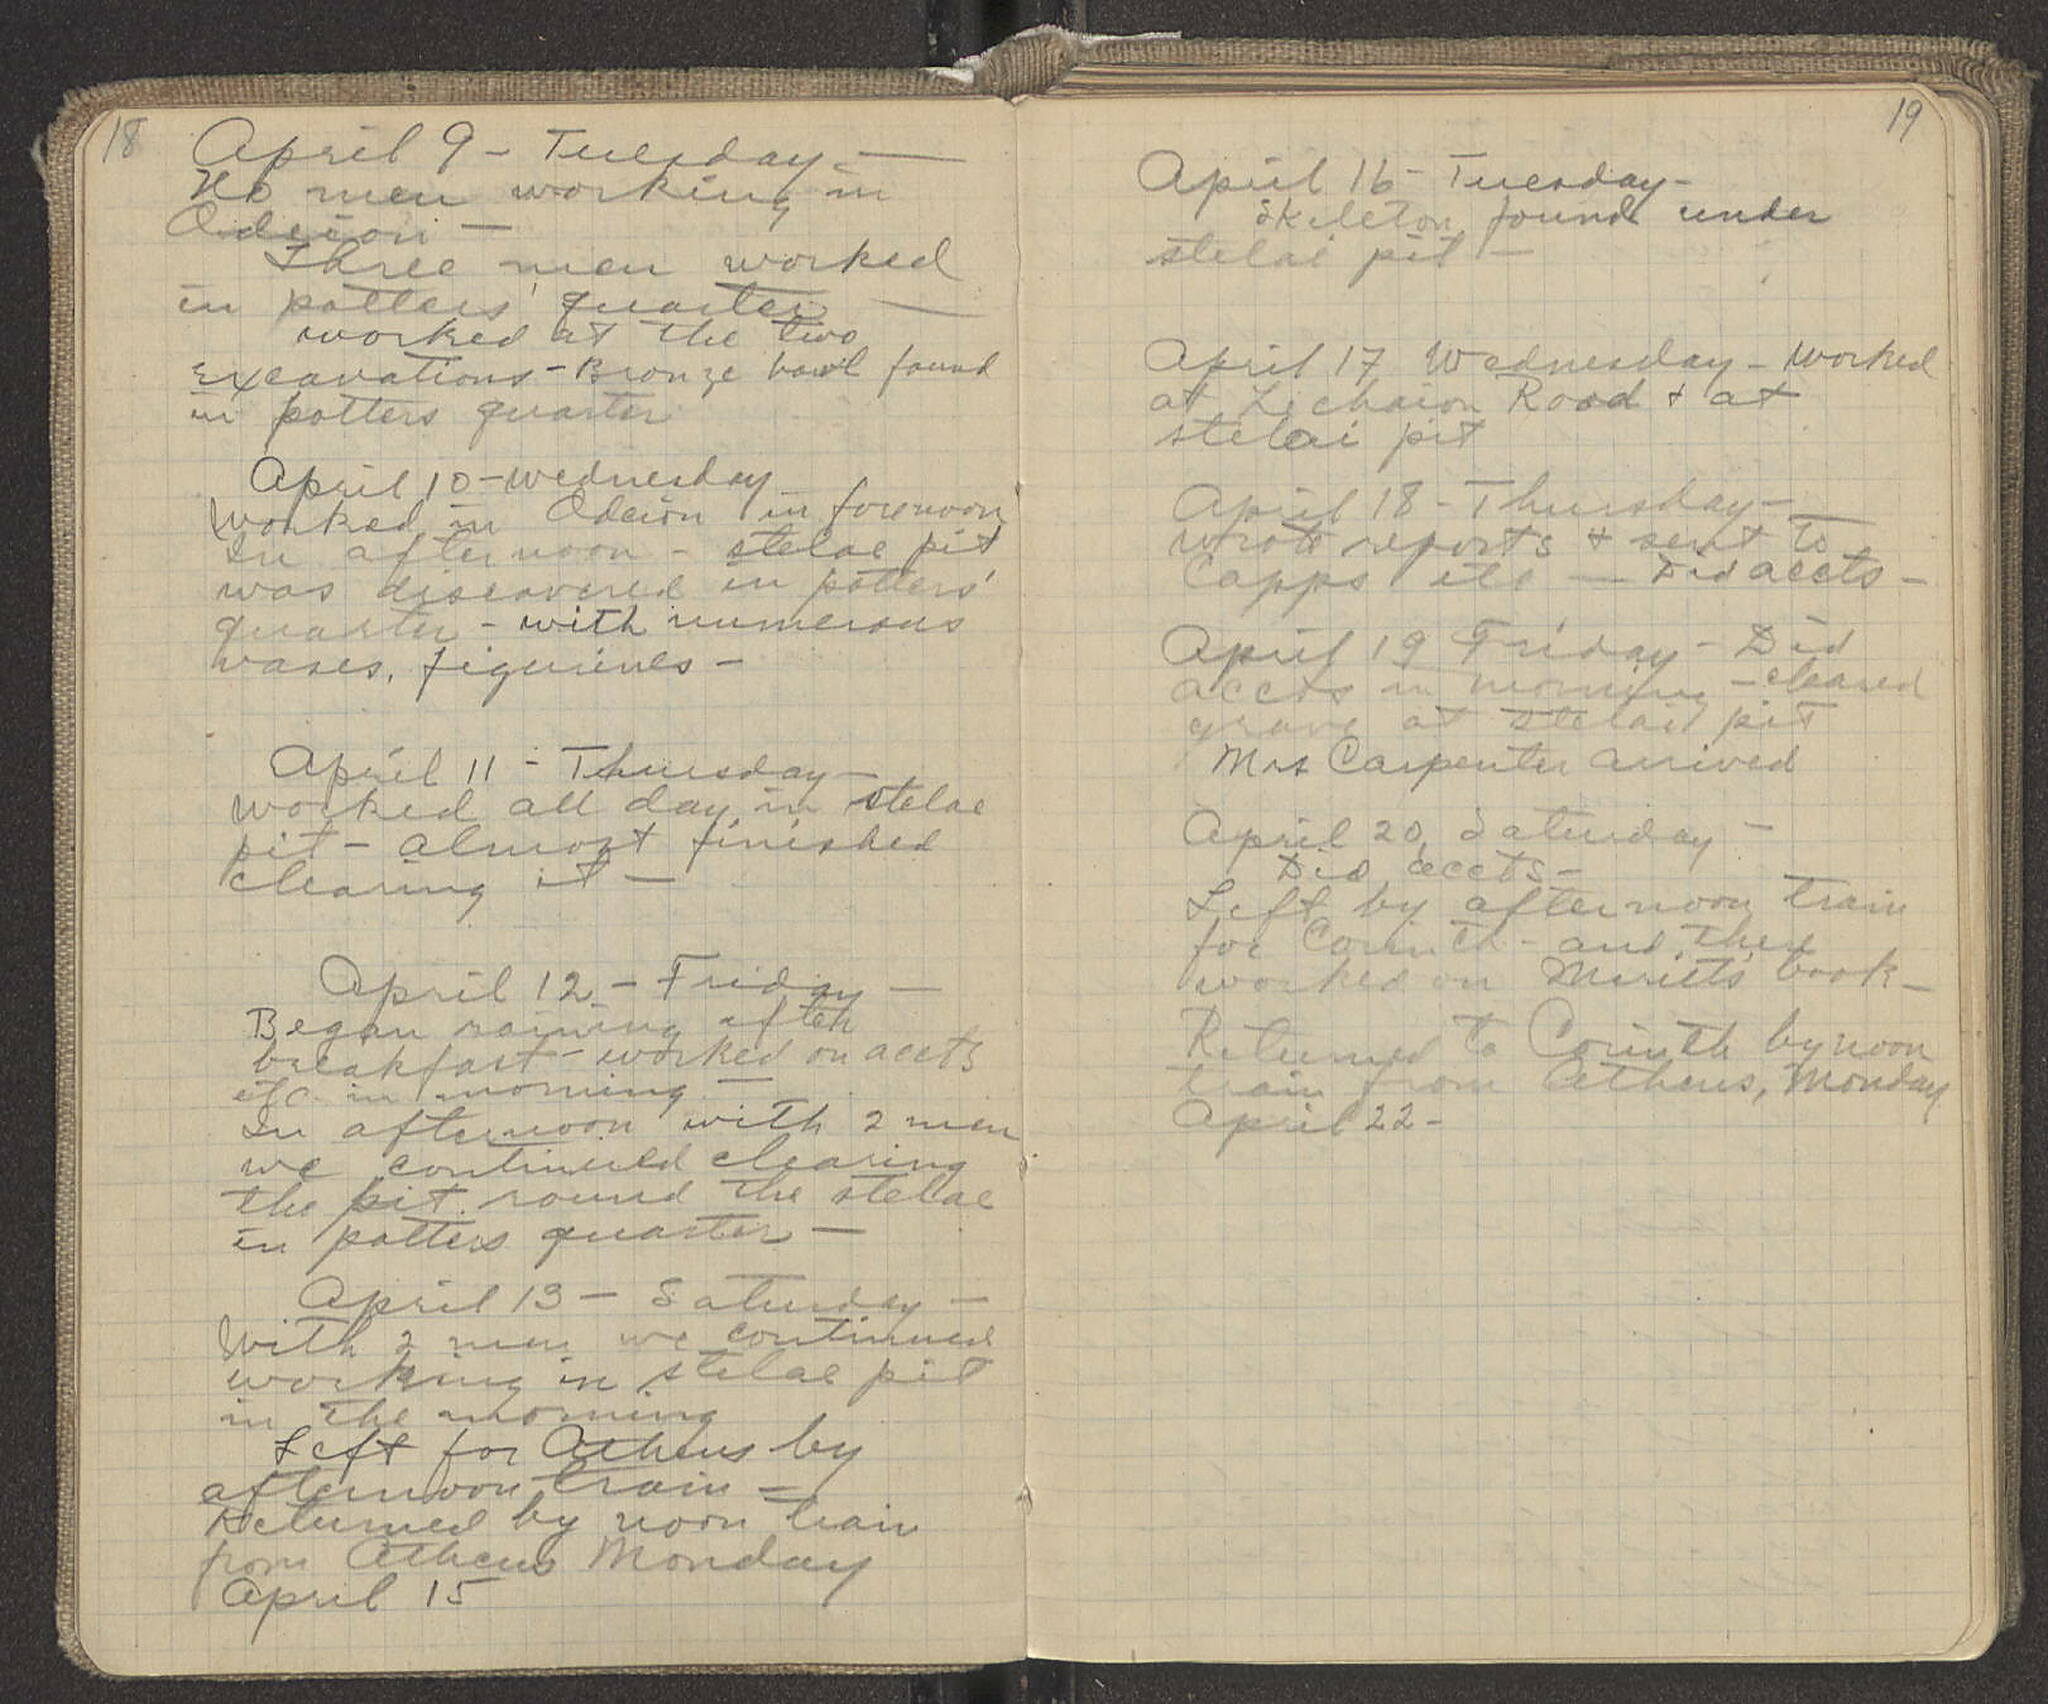 18
April 9 - Tuesday -
No men working in
Odeion -
Three men worked
in potters' quarter -
worked at the two
excavations - Bronze bowl found
in potters quarter
April 10 - Wednesday
Worked in Odeion in forenoon
In afternoon - stelae pit
was discovered in potters'
quarter - with numerous
vases, figurines -
April 11 - Thursday -
Worked all day in stelae
pit - almost finished
clearing it -
April 12 - Friday -
Began raining after
breakfast - worked on accts
etc. in morning -
In afternoon with 2 men
we continued clearing
the pit round the stelae
in potters quarter -
April 13 - Saturday -
With 2 men we continued
working in stelae pit
in the morning
Left for Athens by
afternoon train -
Returned by noon train
from Athens Monday
April 15
19
April 16 - Tuesday -
Skeleton found under
stelai pit -
April 17 Wednesday - Worked
at Lechaion Road + at
stelai pit
April 18 - Thursday -
wrote reports + sent to
Capps etc - Did accts -
April 19 Friday - Did
accts in morning - cleared
grave at stelai pit
Mrs Carpenter arrived
April 20, Saturday -
Did accts -
Left by afternoon train
for Corinth - and there
worked on Meritt's book -
Returned to Corinth by noon
train from Athens, Monday
April 22 -